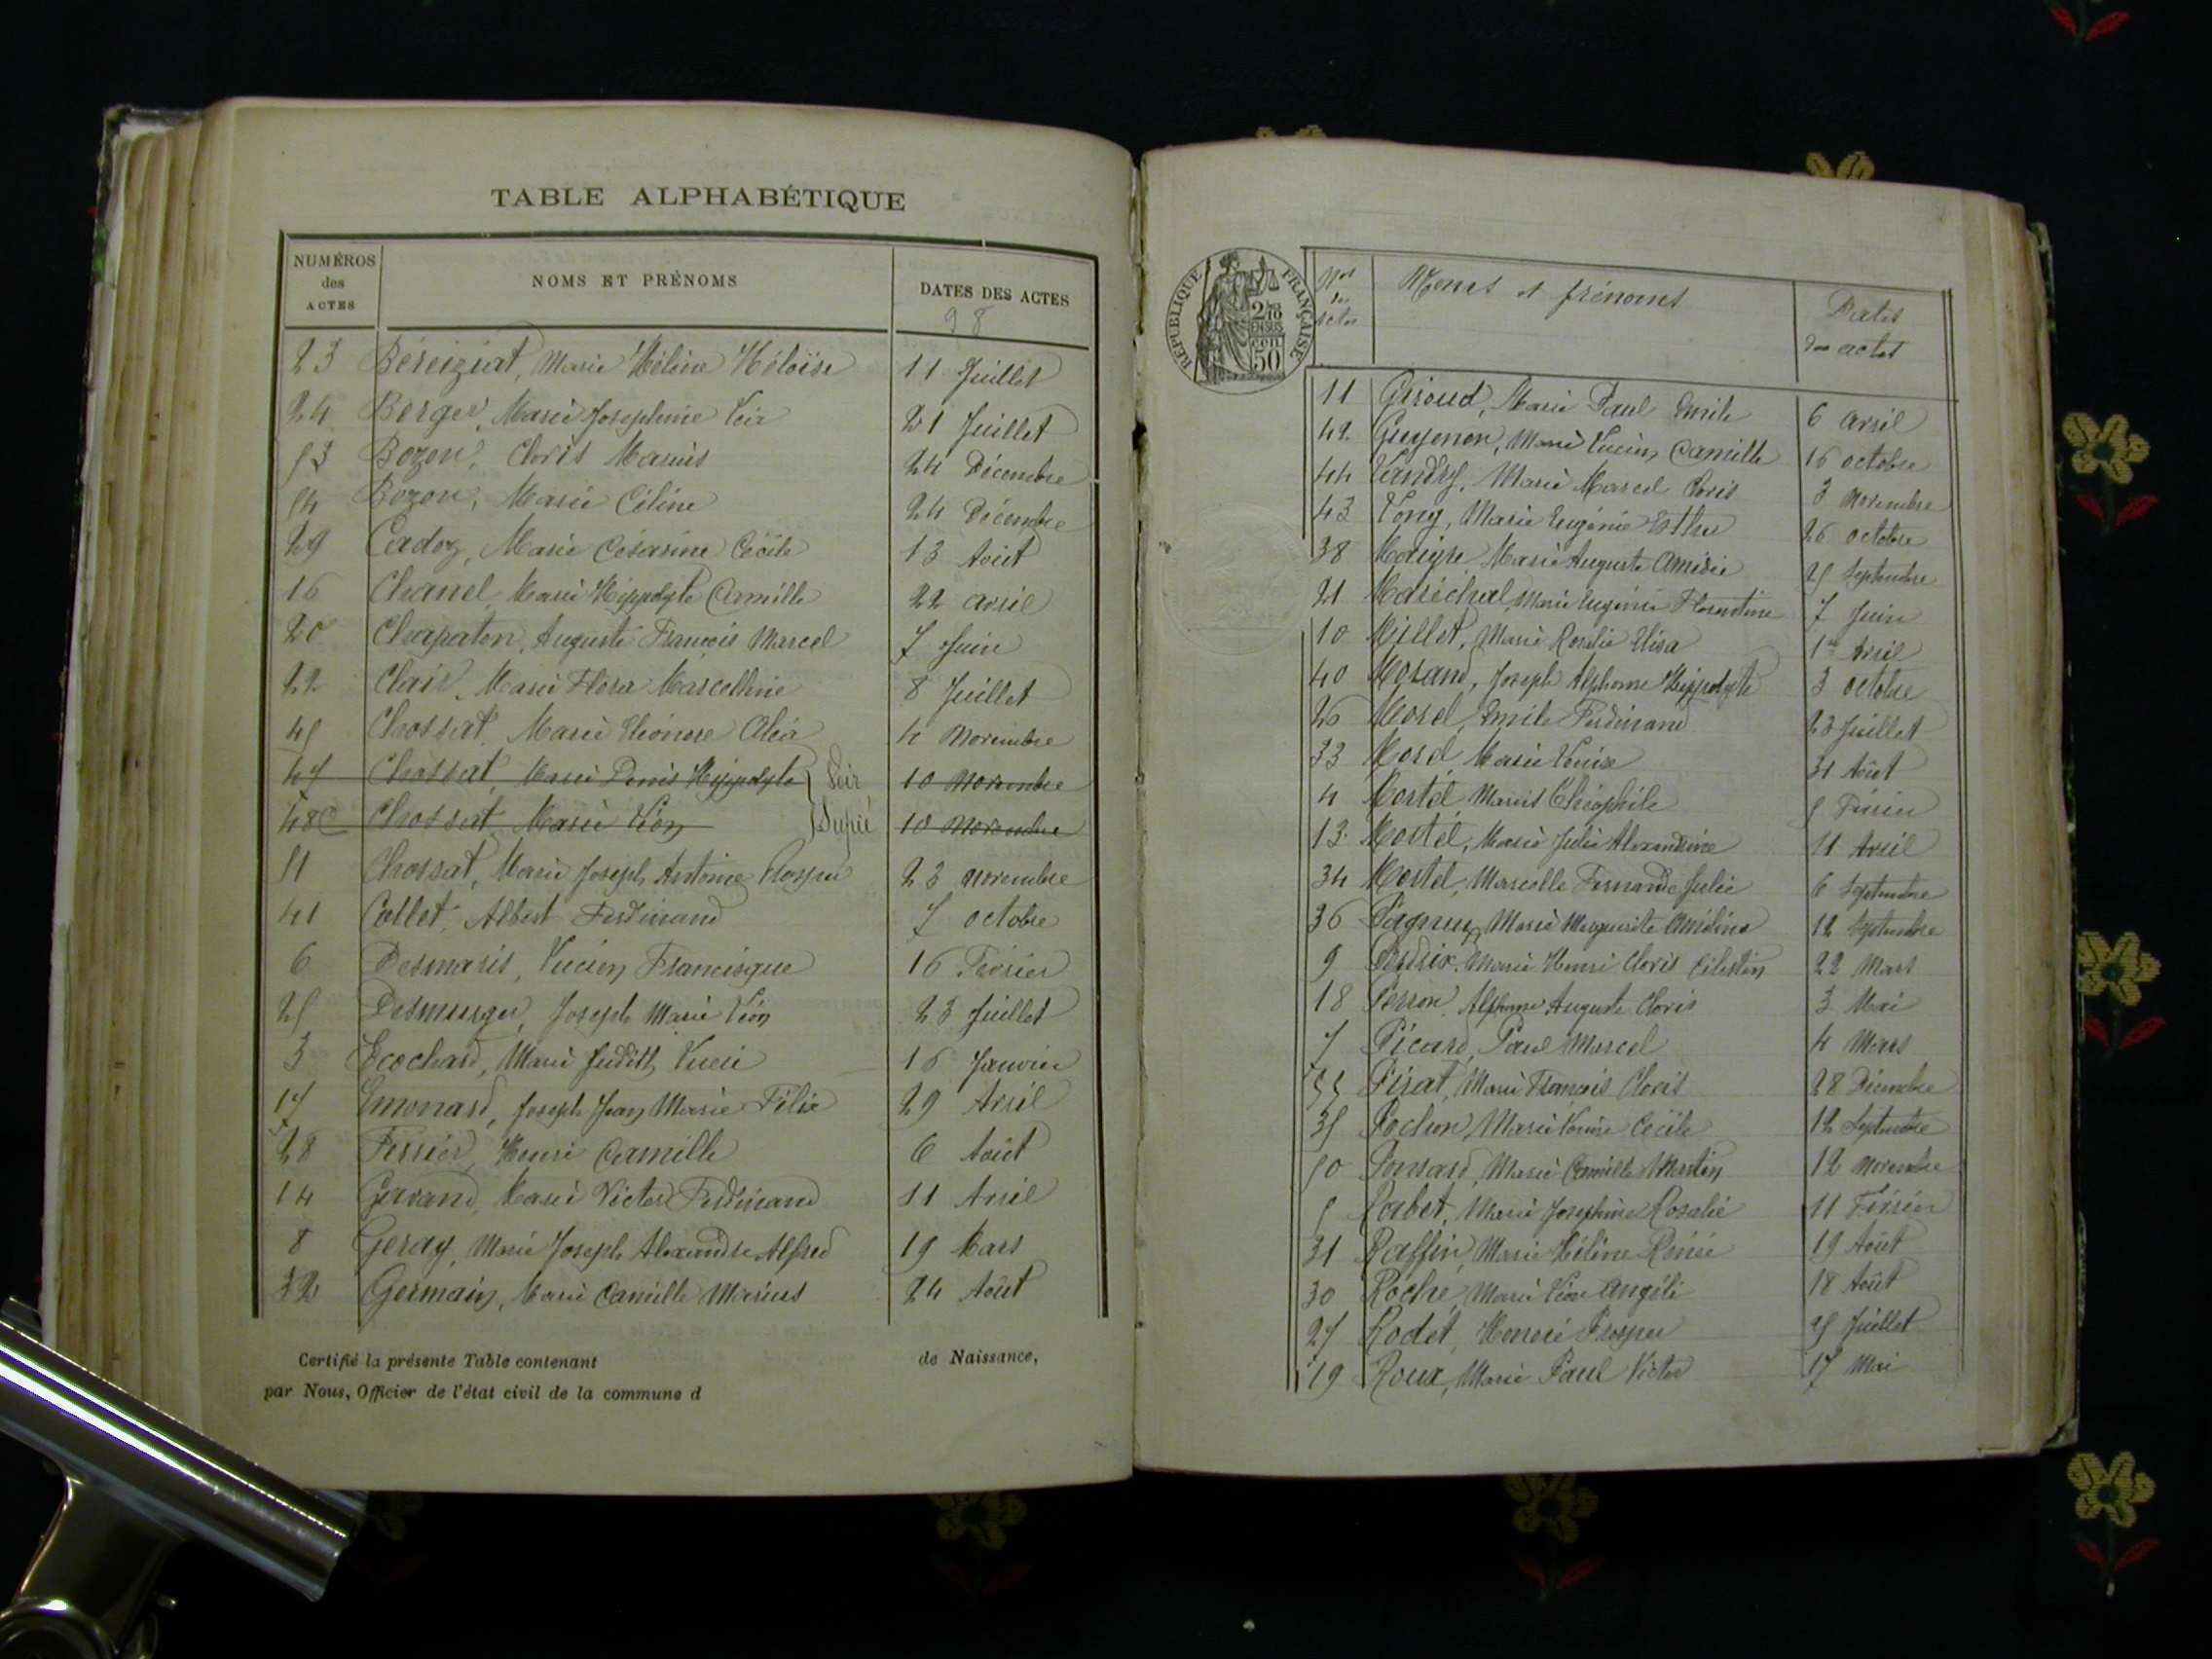 TABLE ALPHABÉTIQUE
NUMÉROS des ACTES NOMS ET PRÉNOMS DATES DES ACTES
98
23 Béreiziat, Marie Hélène Héloïse 11 Juillet
24 Berger, Marie Josephine Léa 21 Juillet
53 Bozon, Cloris Marius 24 Décembre
54 Bozon, Marie Céline 24 Décembre
29 Cadoz, Marie Césarine Cécile 13 Août
16 Chanel, Marie Hippolyte Camille 22 avril
20 Chapaton, Auguste François Marcel 7 Juin
22 Clair, Marie Flora Marcelline 8 Juillet
45 Chossat, Marie Eléonore Aléa 4 Novembre
47 Chossat, Marie Denis Hyppolyte Voir 10 Novembre
48 Chossat Marie Léon Dupré 10 Novembre
51 Chossat, Marie Joseph Antoine Prosper 23 novembre
41 Collet, Albert Ferdinand 7 octobre
6 Desmaris, Lucien Francisque 16 Février
25 Desmurger, Joseph Marie Léon 23 Juillet
3 Ecochard, Marie Judith Lucie 16 Janvier
17 Emonard, Joseph Jean Marie Félix 29 Avril
28 Ferrier, Henri Camille 6 Août
14 Gavand, Marie Victor Ferdinand 11 Avril
8 Geray, Marie Joseph Alexandre Alfred 19 Mars
32 Germain, Marie Camille Marius 24 Août
Certifié la présente Table contenant de Naissance,
par Nous, Officier de l'état civil de la commune d
RÉPUBLIQUE FRANÇAISE
2/10
EN SUS
50 cen
Nos des actes Noms et prénoms Dates des actes
11 Giroud, Marie Paul Emile 6 avril
42 Guyenon, Marie Lucien Camille 16 octobre
44 Landry, Marie Marcel Cloris 3 novembre
43 Long, Marie Eugénie Esther 26 octobre
38 Maigre Marie Auguste Amédée 25 Septembre
21 Maréchal, Marie Eugénie Florentine 7 Juin
10 Millet, Marie Rosalie Elisa 1er Avril
40 Morand, Joseph Alphonse Hippolyte 3 octobre
26 Morel, Emile Ferdinand 23 Juillet
33 Morel Marie Louise 31 Août
4 Mortel Marius Théophile 5 Février
13 Mortel, Marie Julie Alexandrine 11 Avril
34 Mortel, Marcelle Fernande Julie 6 Septembre
36 Pagneux, Marie Marguerite Améline 12 Septembre
9 Perdrix, Marie Henri Cloris Célestin 22 Mars
18 Perron, Alphonse Auguste Cloris 3 Mai
7 Picard, Paul Marcel 4 Mars
55 Pirat, Marie François Cloris 28 Décembre
35 Pochon, Marie Louise Cécile 12 Septembre
50 Ponsard, Marie Camille Martin 12 novembre
5 Rabet, Marie Josephine Rosalie 11 Février
31 Raffin, Marie Hélène Renée 19 Août
30 Roche, Marie Léon Angéli 18 Août
27 Rodet, Honoré Prosper 25 Juillet
19 Roux, Marie Paul Victor 17 Mai